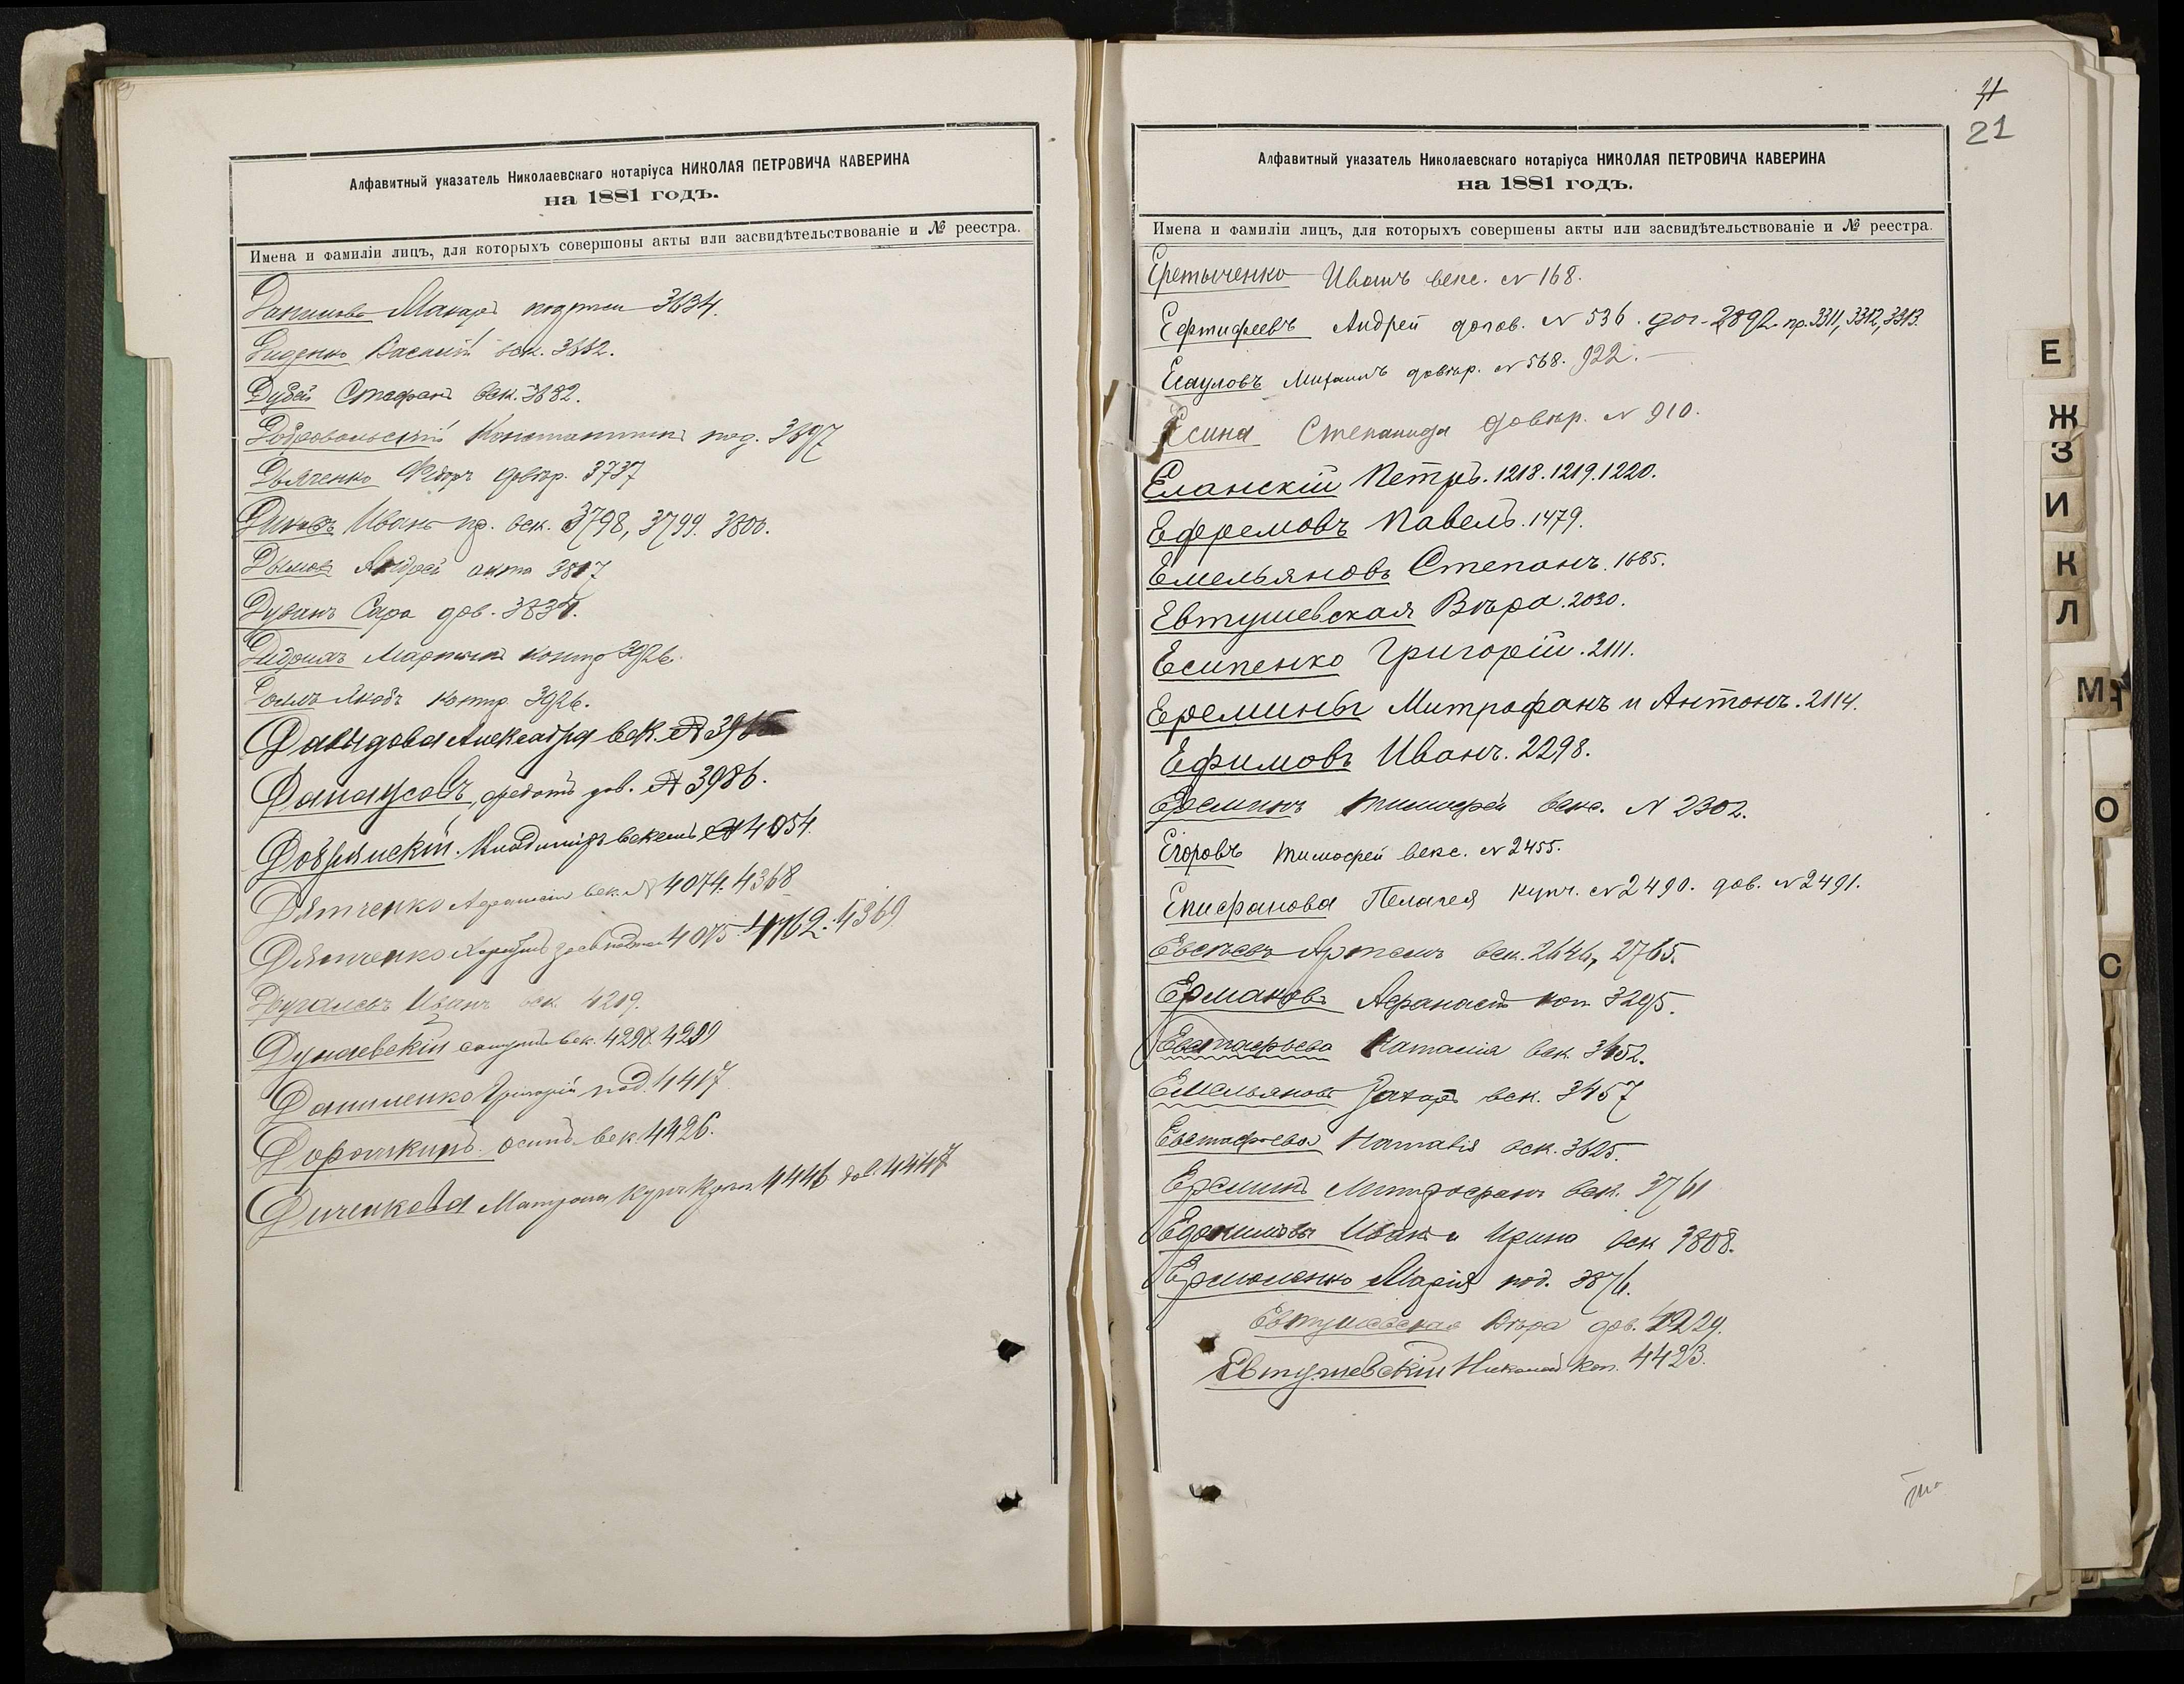 Алфавитный указатель Николаевскаго нотаріуса НИКОЛАЯ ПЕТРОВИЧА КАВЕРИНА
на 1881 годъ.
Имена и фамиліи лицъ, для которыхъ совершоны акты или засвидѣтельствованіе и № реестра.
Макаръ 3634.
Диденко Василій век.
Дубай Стефанъ век. 3682.
Добровольскій Константинъ под. 3697
Дьяченко Ѳедоръ довѣр. 3737
Иванъ пр. век. 3798, 3799. 3800.
Дымовъ Андрей акта 3817
Дуванъ Сара дов.
Мартынъ контр 3926.
Яковъ контр 3926.
Давыдова Александра век. №
Ѳедотъ дов. № 3986.
Добрянскій Владиміръ № 4054.
Дятченко Афанасій век. № 4074. 4368
Дятченко 4075. 4162. 4369
Иванъ век. 4219.
Дунаевскій век.
Даниленко Григорій под. 4417
Дорошкинъ Осипъ век 4426.
Диченкова Матрона 4446 дов. 4447
71
21
Алфавитный указатель Николаевскаго нотаріуса НИКОЛАЯ ПЕТРОВИЧА КАВЕРИНА
на 1881 годъ.
Имена и фамиліи лицъ, для которыхъ совершены акты или засвидѣтельствованіе и № реестра.
Еретыченко Иванъ векс. № 168.
Ефтифеевъ Андрей догов. № 536. дог. 2892 пр. 3311, 3312, 3313.
Есауловъ Михаилъ довѣр. № 568. 922.
Есина Степанида довѣр. № 910.
Еланскій Петръ. 1218. 1219. 1220.
Ефремовъ Павелъ. 1479.
Емельяновъ Степанъ. 1685.
Евтушевская Вѣра. 2030.
Есипенко Григорій. 2111.
Еремины Митрофанъ и Антонъ. 2114.
Ефимовъ Иванъ. 2298.
Ереминъ Тимофей векс. № 2302.
Егоровъ Тимофей векс. № 2455.
Епифанова Пелагея купч. № 2490. дов. № 2491.
Евсѣевъ Артемъ век. 2644, 2765.
Ермаковъ Афанасій коп 3295.
Евстафьева Наталія век 3452.
Емельяновъ Захаръ век. 3457
Евстафьева Наталія век. 3625.
Ереминъ Митрофанъ век. 3761
Иванъ и Ирина век 3808.
Ермоленко Марія под. 3876.
Евтушевская Вѣра дов. 4229.
Евтушевскій Николай коп. 4423.
Е
Ж
З
И
К
Л
М
О
С